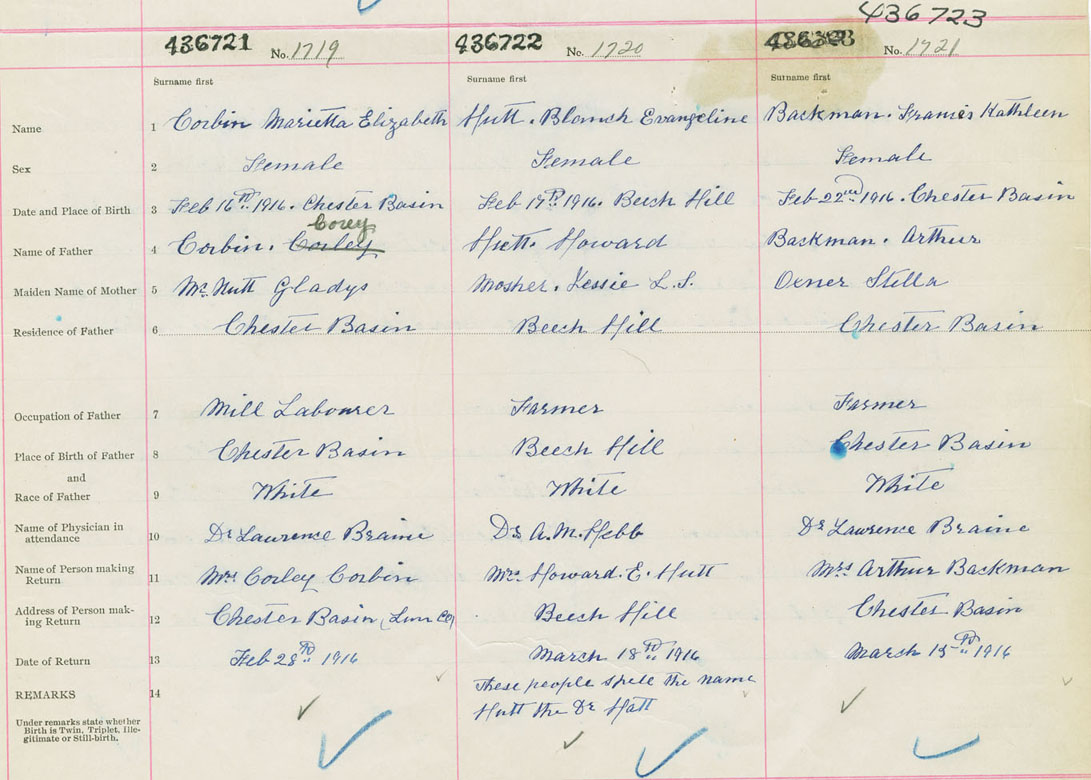 436723
436721 No. 1719 436722 No. 1720 No. 1721
Surname first Surname first Surname first
Name 1 Corbin Marietta Elizabeth Hutt. Blanch Evangeline Backman. Francis Kathleen
Sex 2 Female Female Female
Date and Place of Birth 3 Feb 16th 1916. Chester Basin Feb 17th 1916. Beech Hill Feb 22nd 1916. Chester Basin
Corey
Name of Father 4 Corbin. Corley Hutt. Howard Backman. Arthur
Maiden Name of Mother 5 McNutt Gladys Mosher. Lessie L.S. Oxner Stella
Residence of Father 6 Chester Basin Beech Hill Chester Basin
Occupation of Father 7 Mill Labourer Farmer Farmer
Place of Birth of Father 8 Chester Basin Beech Hill Chester Basin
and
Race of Father 9 White White White
Name of Physician in
attendance 10 Dr Lawrence Braine Dr A.M. Hebb Dr Lawrence Braine
Name of Person making
Return 11 Mrs Corley Corbin Mrs Howard. E. Hutt Mrs Arthur Backman
Address of Person mak-
ing Return 12 Chester Basin (Lun Co) Beech Hill Chester Basin
Date of Return 13 Feb 28th 1916 March 18th 1916 March 15th 1916
REMARKS 14 These people spell the name
Hutt the Dr Hatt
Under remarks state whether
Birth is Twin, Triplet, Ille-
gitimate or Still-birth.